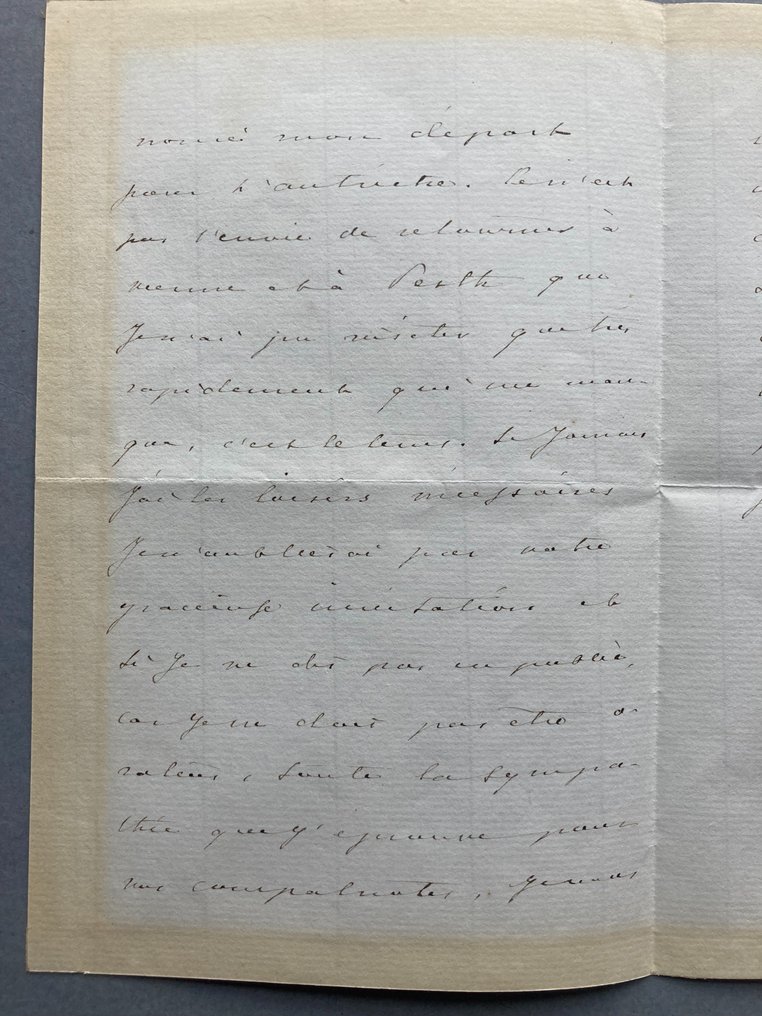 noncé mon départ
pour l'autriche. Ce n'est
pas l'envie de retourner à
vienne et à Pesth que
Je n'ai pu visiter que très
rapidement qui me man-
que, c'est le tems. Si Jamais
J'ai les loisirs nécessaires
Je n'oublierai pas votre
gracieuse invitation et
si Je ne dis pas en public,
car Je ne dois pas être o
rateur, toute la sympa-
thie que J'éprouve pour
vos compatriotes, Je vous